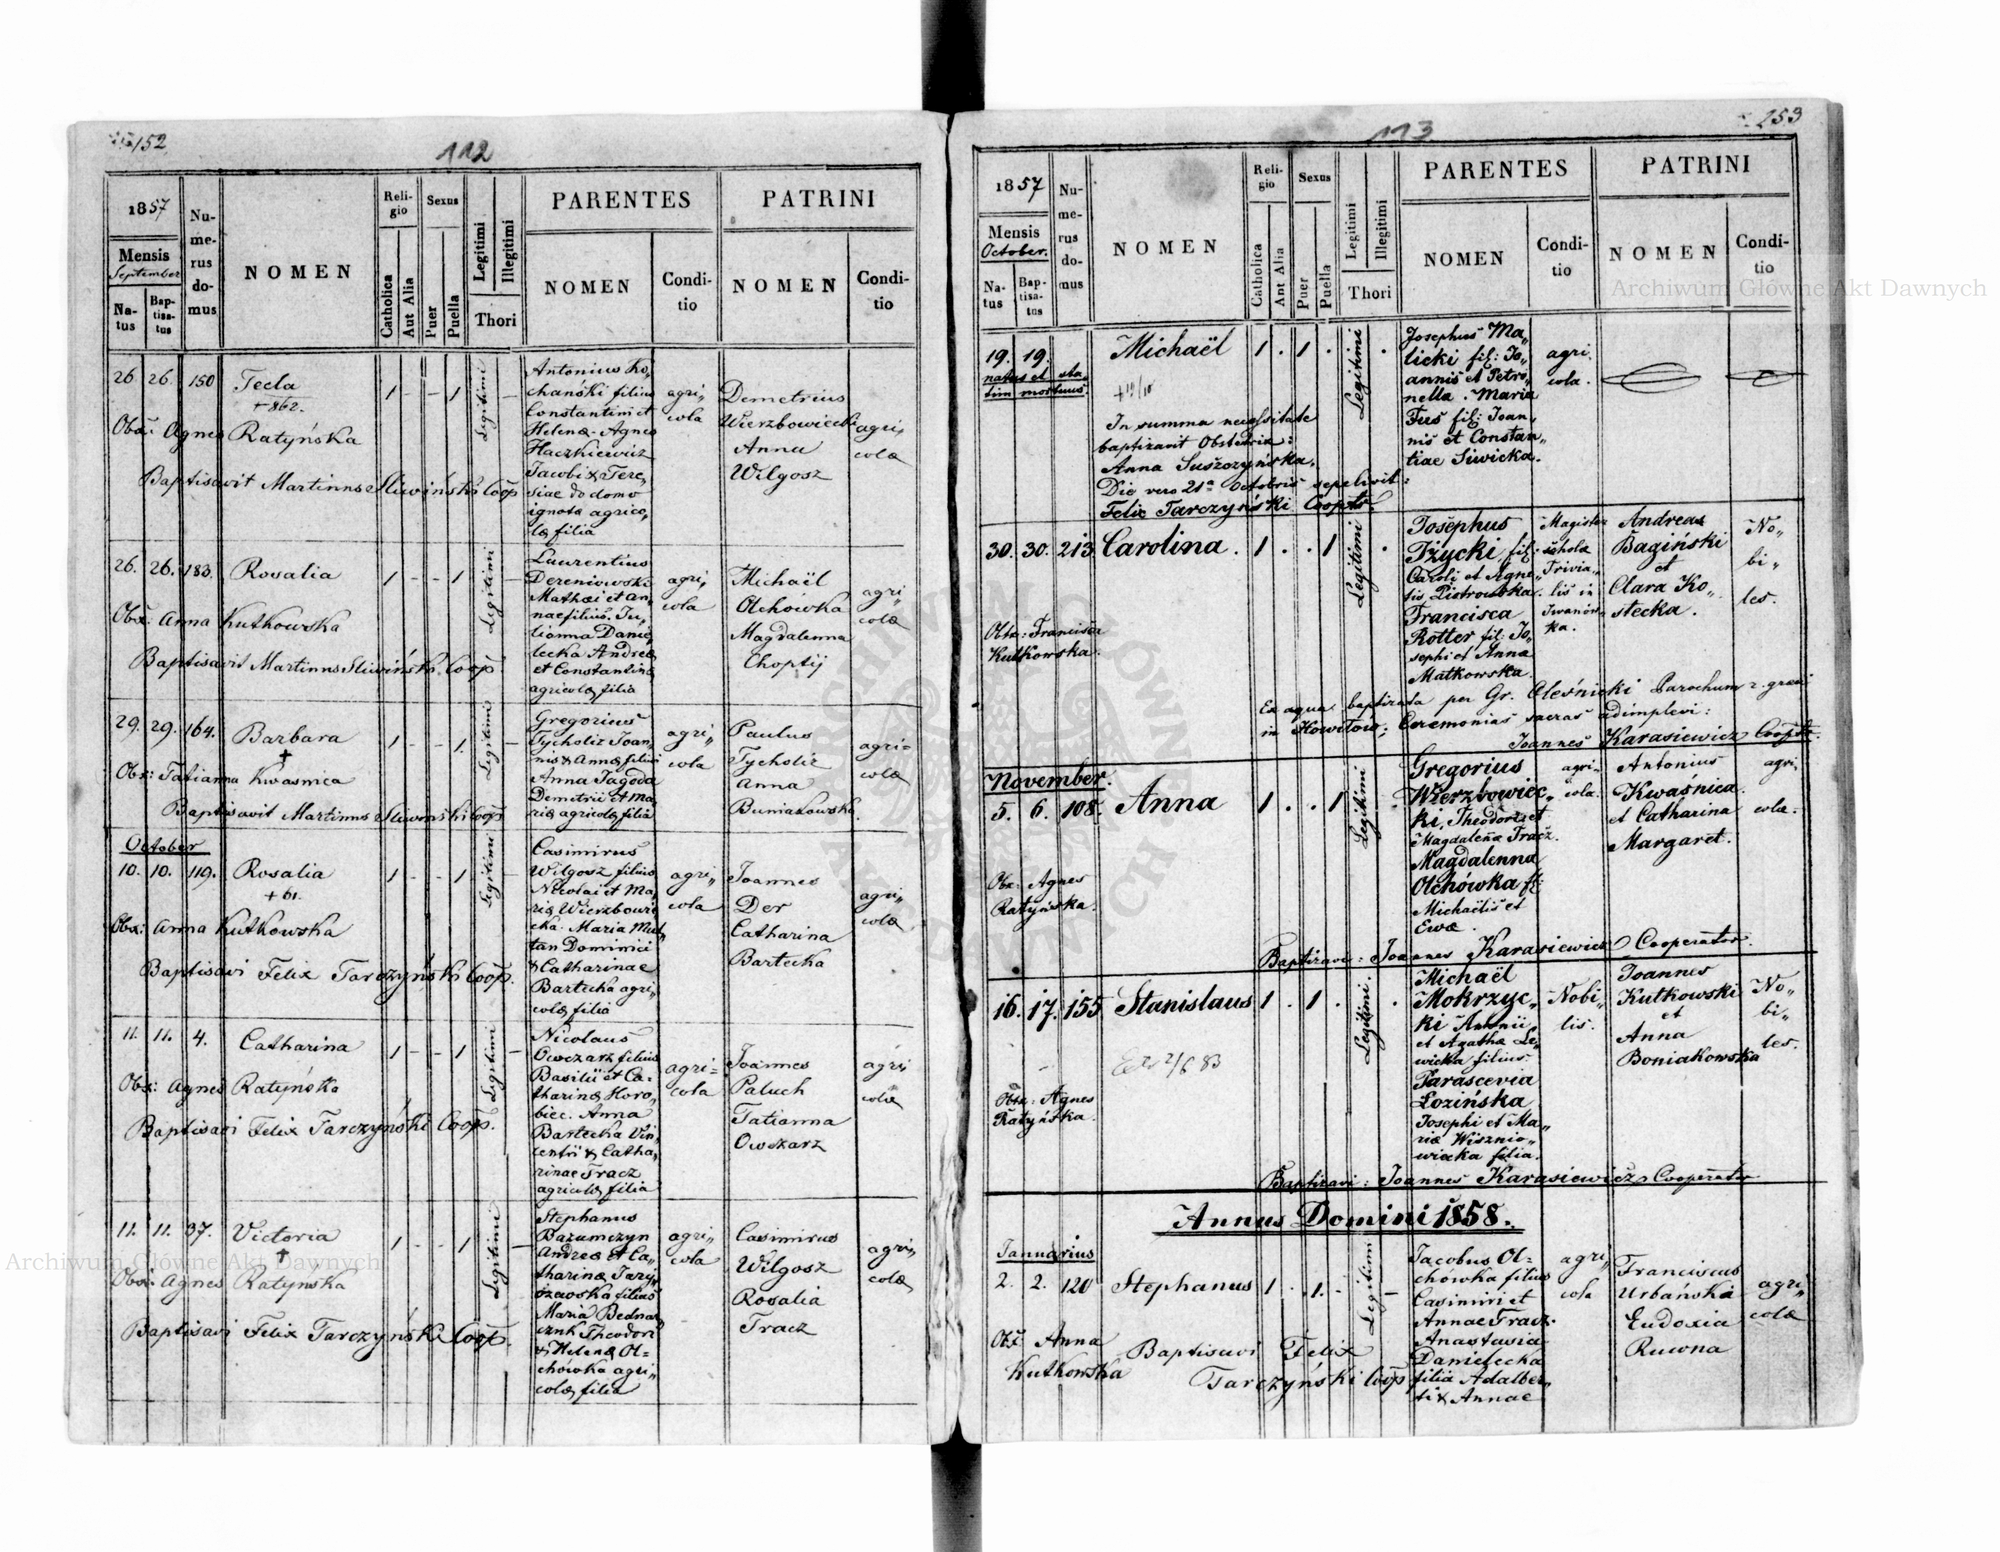 152
112
1857
Mensis
September
Na-
tus
Bap-
tisa-
tus
Nu-
me-
rus
do-
mus
NOMEN
Reli-
gio
Catholica
Aut Alia
Sexus
Puer
Puella
Legitimi
Illegitimi
Thori
PARENTES
NOMEN
Condi-
tio
PATRINI
NOMEN
Condi-
tio
26 26. 150 Tecla 1 - - 1 Legitimi
+ 862.
Obx: Agnes Ratyńska
Baptisavit Martinus Sliwiński Coop
Antonius Ko„
chański filius
Constantini et
Helenæ - Agnes
Haczkiewicz
Jacobi & Tere„
siae do domo
ignotæ agrico„
læ filia
agri„
cola
Demetrius
Wierzbowiecki
Anna
Wilgosz
agri„
colæ
26. 26. 183. Rosalia 1 - - 1 Legitimi -
Obx: Anna Kutkowska
Baptisavit Martinus Sliwiński Coop.
Laurentius
Dereniowski
Mathæi et An„
nae filius. Ju„
lianna Danie„
lecka Andreæ
et Constantinæ
agricolæ filia
agri„
cola
Michaël
Olchówka
Magdalenna
Choptij
agri„
colæ
29. 29. 164. Barbara 1 - - 1. Legitimi -
+
Obx: Tatianna Kwasnica
Baptisavit Martinus Sliwinski Coop.
Gregorius
Tycholiz Joan„
nis & Annæ filius
Anna Jagoda
Demetrii et Ma„
riæ agricolæ filia
agri„
cola
Paulus
Tycholiz
Anna
Buniakowska.
agri=
colæ
October
10. 10. 119. Rosalia 1 - - 1 - Legitimi -
+ 61.
Obx: Anna Kutkowska
Baptisavi Felix Tarczyński Coop.
Casimirus
Wilgosz filius
Nicolai et Ma„
riæ Wierzbowie„
cka. Maria Mul„
tan Dominici
& Catharinae
Bartecka agri„
colæ filia
agri„
cola
Joannes
Der
Catharina
Bartecka
agri„
colæ
11. 11. 4. Catharina 1 - - 1 Legitimi -
Obx: Agnes Ratyńska
Baptisavi Felix Tarczyński Coop.
Nicolaus
Owczarz filius
Basilii et Ca-
tharinæ Horo„
biec. Anna
Bartecka Vin„
centii & Catha„
rinae Tracz
agricolæ filia
agri=
cola
Joannes
Paluch
Tatianna
Owczarz
agri„
colæ
11. 11. 37. Victoria 1 - - 1 Legitimi -
+
Obx: Agnes Ratynska
Baptisavi Felix Tarczyński Coop.
Stephanus
Andreæ et Ca„
tharinæ
filius
Maria Bednar„
Theodori
& Helenæ Ol=
chówka agri„
colæ filia
agri„
cola
Casimirus
Wilgosz
Rosalia
Tracz
agri„
colæ
253
113
1857
Mensis
October.
Na-
tus
Bap-
tisa-
tus
Nu-
me-
rus
do-
mus
NOMEN
Reli-
gio
Catholica
Aut Alia
Sexus
Puer
Puella
Legitimi
Illegitimi
Thori
PARENTES
NOMEN
Condi-
tio
PATRINI
NOMEN
Condi-
tio
19. 19. Michaël 1 . 1 . Legitimi .
natus et sta
tim mortuus.
+ 19/10
In summa necessitate
baptizavit Obstetrix:
Anna Suszczyńska.
Die vero 21ª Octobris sepelivit:
Felix Tarczyński Cooptr.
Josephus Ma„
licki fil: Jo„
annis et Petro„
nella. Maria
Fus fil: Joan„
nis et Constan„
tiae Siwicka.
agri.
cola.
30. 30. 213 Carolina. 1 . . 1 Legitimi .
Obx: Francisca
Kutkowska.
Josephus
Iżycki fil:
Caroli et Agne„
tis Piotrowska.
Francisca
Rotter fil: Jo„
sephi et Annæ
Matkowska.
Magister
scholæ
Trivia„
lis in
Iwanów„
ka.
Andreas
Bagiński
et
Clara Ko„
stecka.
No„
bi„
les.
Ex aqua baptizata per Gr. Oleśnicki Parochum r. graeci
in Howiłów; Ceremonias sacras adimplevi:
Joannes Karasiewicz Cooptr.
November.
5. 6. 108. Anna 1 . . 1 Legitimi
Obx: Agnes
Ratyńska.
Gregorius
Wierzbowiec„
ki, Theodori et
Magdalenæ Tracz.
Magdalenna
Olchówka f:
Michaëlis et
Ewæ.
agri„
cola.
Antonius
Kwaśnica.
et Catharina
Margaret.
agri„
cola.
Baptizavi: Joannes Karasiewicz Cooperator.
16. 17. 155 Stanislaus 1 . 1 . Legitimi. .
Obx: Agnes
Ratyńska.
Michaël
Mokrzyc„
ki Antonii
et Agathæ Le„
wicka filius
Parascevia
Łozińska
Josephi et Ma„
riæ Wisznio„
wiecka filia.
Nobi„
lis.
Joannes
Kutkowski
et
Anna
Boniakowska
No„
bi„
les.
Baptizavi: Joannes Karasiewicz Cooperator
Annus Domini 1858.
Januarius
2. 2. 120 Stephanus 1 . 1. - Legitimi -
Obx: Anna
Kutkowska
Baptisavi Felix
Tarczyński Coop
Jacobus Ol=
chówka filius
Casimiri et
Annae Tracz.
Anastasia
Danielecka
filia Adalber„
ti & Annae
agri„
cola
Franciscus
Urbańska
Eudoxia
Ruwna
agri„
colæ
Archiwum Główne Akt Dawnych
Archiwum Główne Akt Dawnych